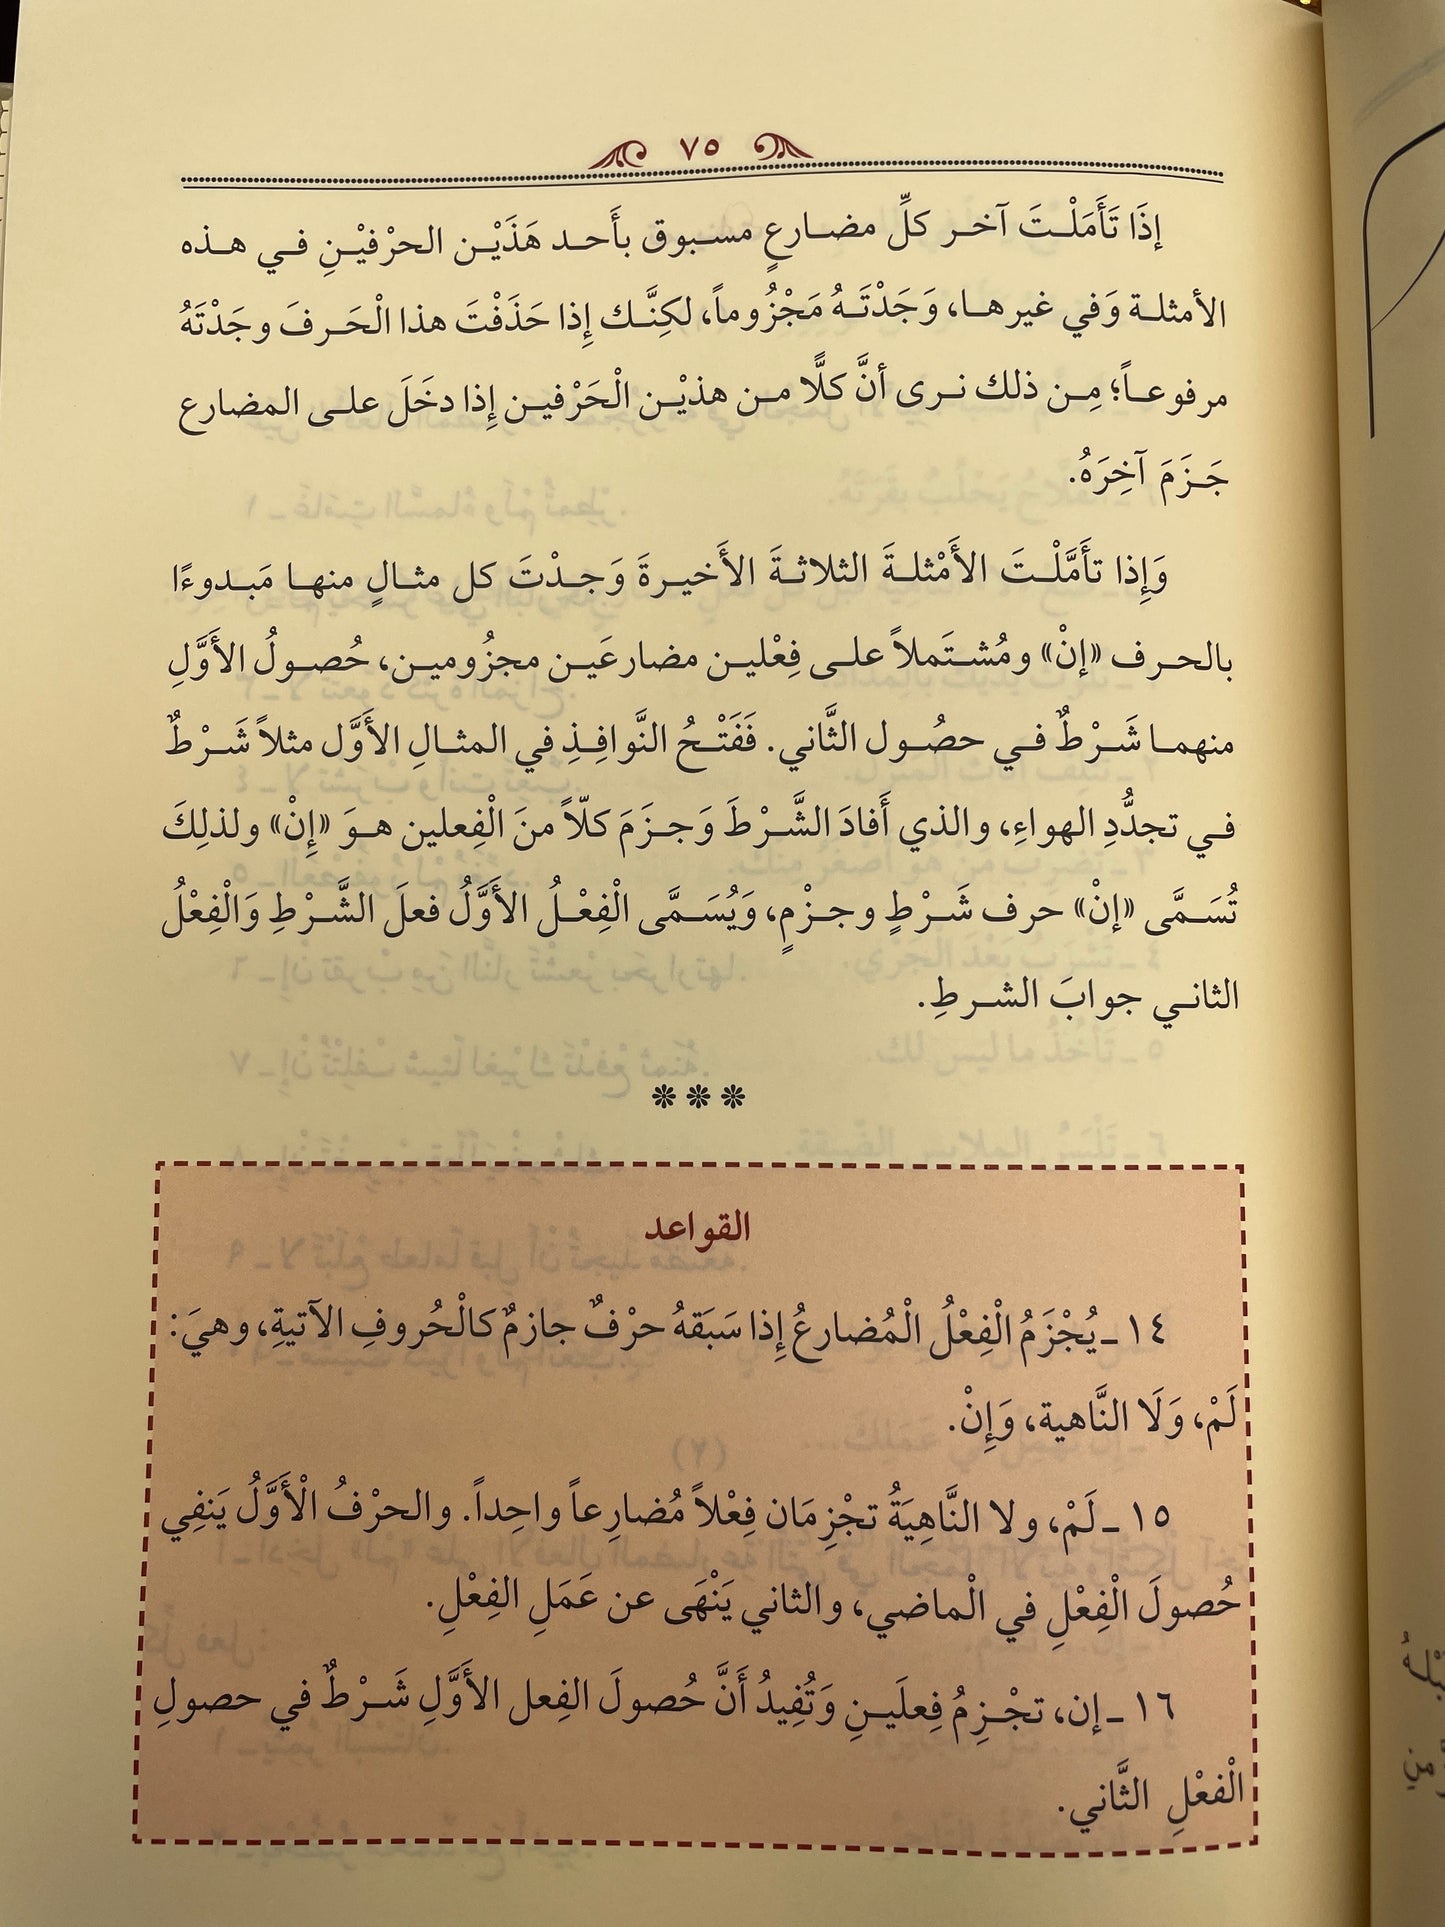 ٧٥
إذَا تَأَمَلْتَ آخر كلِّ مضارعٍ مسبوق بأَحد هَذَيْن الحرْفيْنِ في هذه
الأمثلة وَفي غيرها، وَجَدْتَهُ مَجْزُوماً، لكِنَّك إِذا حَذَفْتَ هذا الْحَرفَ وجَدْتَهُ
مرفوعاً؛ مِن ذلك نرى أنَّ كلًّا من هذيْن الْحَرْفين إِذا دخَلَ على المضارع
جَزَمَ آخِرَهُ.
وَإِذا تأَمَّلْتَ الأَمْثلةَ الثلاثةَ الأَخيرةَ وَجدْتَ كل مثالٍ منها مَبدوءًا
بالحرف «إنْ» ومُشتَملاً على فِعْلين مضارعَين مجزُومين، حُصولُ الأَوَّلِ
منهما شَرْطٌ في حصُول الثَّاني. فَفَتْحُ النَّوافِذِ في المثالِ الأَوَّل مثلاً شَرْطٌ
في تجدُّدِ الهواءِ، والذي أَفادَ الشَّرْطَ وَجزَمَ كلّاً منَ الْفِعلين هوَ «إِنْ» ولذلِكَ
تُسَمَّى «إنْ» حرف شَرْطٍ وجزْمٍ، وَيُسَمَّى الْفِعْلُ الأَوَّلُ فعلَ الشَّرْطِ وَالْفِعْلُ
الثاني جوابَ الشرطِ.
❊ ❊ ❊
القواعد
١٤ ـ يُجْزَمُ الْفِعْلُ الْمُضارعُ إِذا سَبَقهُ حرْفٌ جازمٌ كالْحُروفِ الآتيةِ، وهيَ:
لَمْ، وَلَا النَّاهية، وَإِنْ.
١٥ ـ لَمْ، ولا النَّاهِيَةُ تجْزِمَان فِعْلاً مُضارِعاً واحِداً. والحرْفُ الْأَوَّلُ يَنفِي
حُصولَ الْفِعْلِ في الْماضي، والثاني يَنْهَى عن عَمَلِ الفِعْلِ.
١٦ ـ إن، تجْزِمُ فِعلَينِ وَتُفِيدُ أَنَّ حُصولَ الفِعل الأَوَّلِ شَرْطٌ في حصولِ
الْفعْلِ الثَّاني.